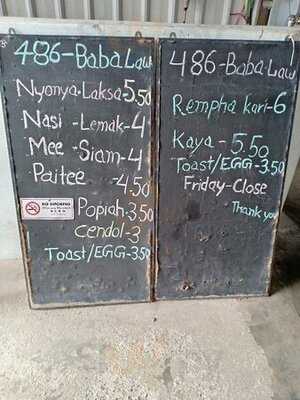 486-Baba Law
Nyonya.Laksa-5.50
Nasi-Lemak-4
Mee-Siam-4
Paitee-4.50
NO SMOKING
Popiah-3.50
Cendol-3
Toast/EGG-3.50
486-Baba-Law
Rempha kari-6
Kaya-5.50
Toast/EGG-3.50
Friday-Close
Thank you